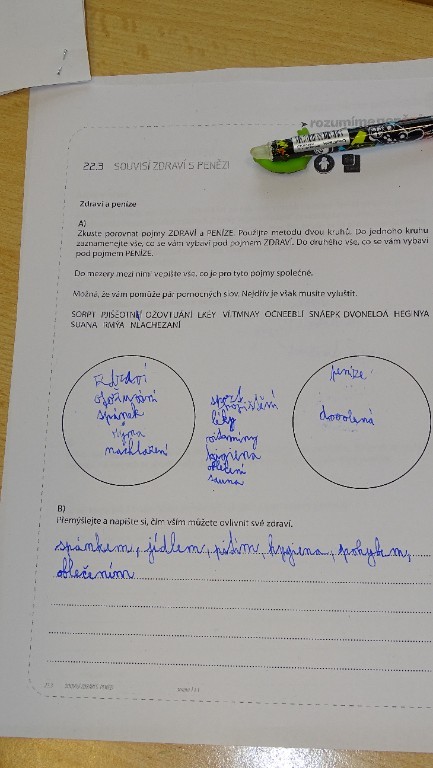 rozumíme penězům
22.3 SOUVISÍ ZDRAVÍ S PENĚZI
Zdraví a peníze
A)
Zkuste porovnat pojmy ZDRAVÍ a PENÍZE. Použijte metodu dvou kruhů. Do jednoho kruhu
zaznamenejte vše, co se vám vybaví pod pojmem ZDRAVÍ. Do druhého vše, co se vám vybaví
pod pojmem PENÍZE.
Do mezery mezi nimi vepište vše, co je pro tyto pojmy společné.
Možná, že vám pomůže pár pomocných slov. Nejdřív je však musíte vyluštit.
SORPT OŽOVTIJÁNÍ LKÉY VÍTMNAY OČNEEBLÍ SNÁEPK DVONELOÁ HEGINYA
SUANA RMÝA NLACHEZANÍ
zdraví
otožování
spánek
rýma
nachlažení
sport
pojištění
léky
vitamíny
hygiena
oblečení
sauna
peníze
dovolená
B)
Přemýšlejte a napište si, čím vším můžete ovlivnit své zdraví.
spánkem, jídlem, pitím, hygiena, pohybem,
oblečením